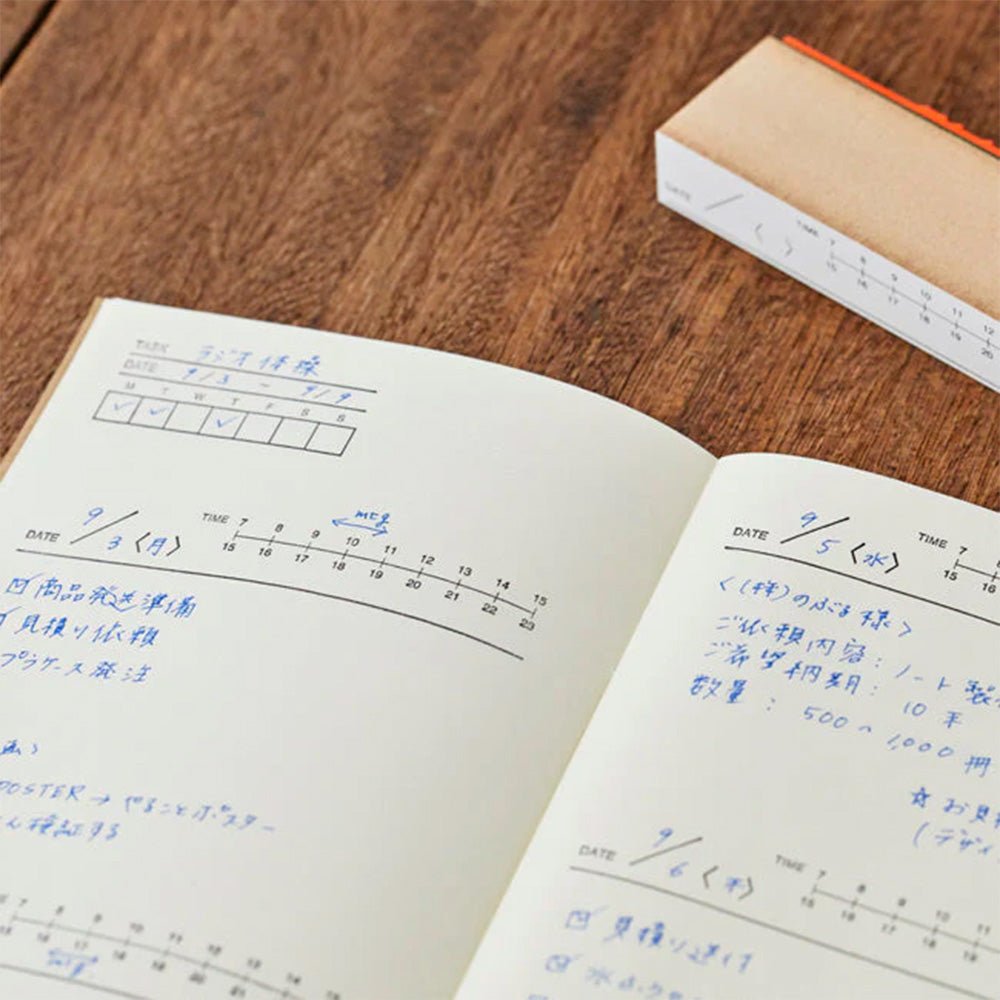 DATE / 〈 〉 TIME 7 8 9 10 11 12
15 16 17 18 19 20
TASK ラジオ体操
DATE 9/3 ~ 9/9
M T W T F S S
✓ ✓ ✓
mtg
DATE 9/3 〈月〉 TIME 7 8 9 10 11 12 13 14 15
15 16 17 18 19 20 21 22 23
☑ 商品発送準備
見積り依頼
プラケース発注
POSTER → やることポスター
検証する
7 8 9 10 11 12 13 14
15 16 17 18 19 20 21
mtg
DATE 9/5 〈水〉 TIME 7
15 16
<(株)のぶる様>
ご依頼内容: ノート製
ご希望納期: 10末
数量: 500~1,000冊
☆ お見
(デザイ
DATE 9/6 〈木〉 TIME 7 8 9 10 11
15 16 17 18 19
☑ 見積り送付
☑